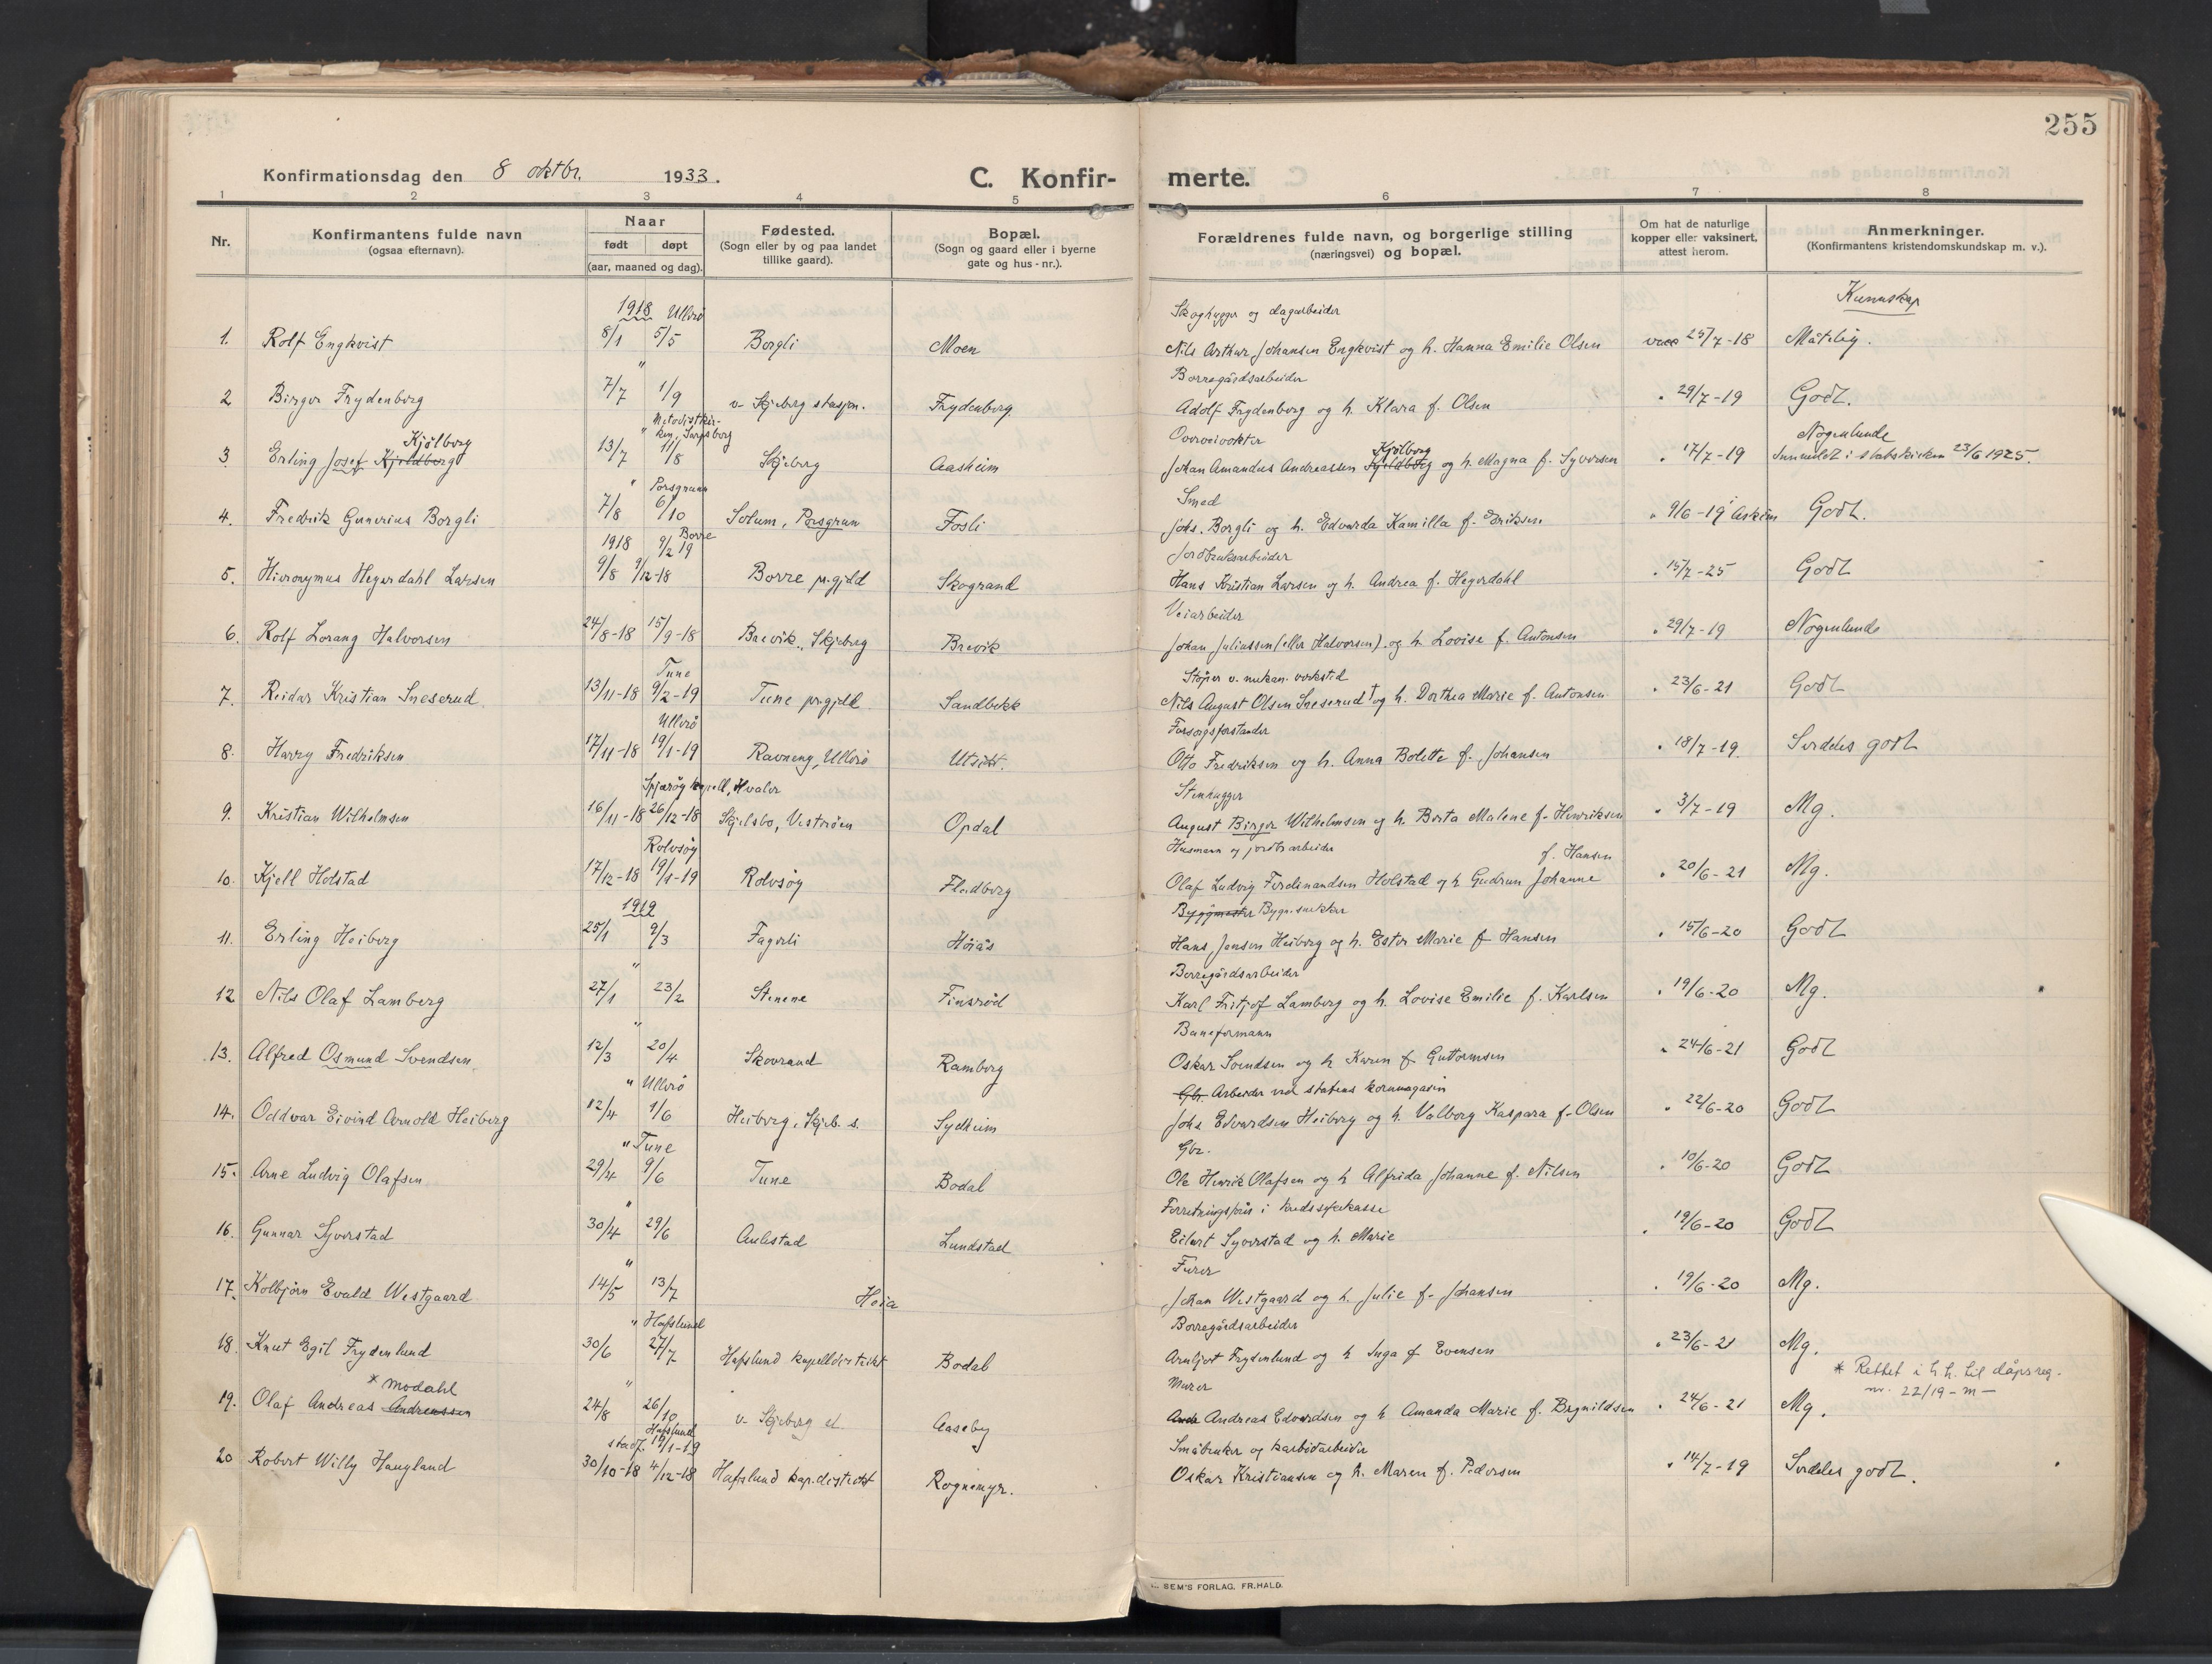 255
Konfirmationsdag den 8 oktbr. 1933.
C. Konfir- merte.
1 2 3 4 5 6 7 8
Nr.
Konfirmantens fulde navn
(ogsaa efternavn).
Naar
født døpt
(aar, maaned og dag).
Fødested.
(Sogn eller by og paa landet
tillike gaard).
Bopæl.
(Sogn og gaard eller i byerne
gate og hus-nr.).
Forældrenes fulde navn, og borgerlige stilling
(næringsvei) og bopæl.
Om hat de naturlige
kopper eller vaksinert,
attest herom.
Anmerkninger.
(Konfirmantens kristendomskundskap m. v.).
1918 Ullerø Skoghugger og dagarbeider Kunnskap
1. Rolf Engkvist 8/1 5/5 Borgli Moen Nils Arthur Johansen Engkvist og h. Hanna Emilie Olsen vacc 25/7-18 Måtelig.
" Borregårdsarbeider
2 Birger Frydenberg 7/7 1/9 v. Skjeberg stasjon. Frydenberg Adolf Frydenberg og h. Klara f. Olsen " 29/7-19 Godt.
Kjölberg " Metodistkirken, Sarpsborg Kjölberg Nogenlunde
3 Erling Josef Kjeldberg 13/7 11/8 Skjeberg Aasheim Johan Amandus Andreassen Kjeldberg og h. Magna f. Syversen " 17/7-19 Innmeldt i statskirken 23/6 1925.
" Porsgrunn Smed
4. Fredrik Gunerius Borgli 7/8 6/10 Solum, Porsgrun Fosli Johs. Borgli og h. Edvarda Kamilla f. Eriksen " 9/6-19 Askim Godt.
1918 9/2 19 Borre Jordbruksarbeider
5. Hieronymus Hegerdahl Larsen 9/8 9/12-18 Borre pr.gjeld Skogrand Hans Kristian Larsen og h. Andrea f. Hegerdahl " 15/7-25 Godt
Veiarbeider
6. Rolf Lorang Halvorsen 24/8-18 15/9-18 Brevik, Skjeberg Brevik Johan Juliussen (eller Halvorsen) og h. Lovise f. Antonsen " 29/7-19 Nogenlunde
Tune Støper v. mekan. verksted
7. Reidar Kristian Sneserud 13/11-18 9/2-19 Tune pr.gjeld Sandbekk Nils August Olsen Sneserud † og h. Dorthea Marie f. Antonsen " 23/6-21 Godt
Ullerø Forsorgsforstander
8. Harry Fredriksen 17/11-18 19/1-19 Ravneng, Ullerø Utsikt. Otto Fredriksen og h. Anna Bolette f. Johansen " 18/7-19. Serdeles godt
Spjærøy kapell, Hvaler Stenhugger
9. Kristian Wilhelmsen 16/11-18 26/12-18 Skjelsbo, Vesterøen Opdal August Birger Wilhelmsen og h. Berta Malene f. Henriksen " 3/7-19 Mg.
Rolvsøy Husmann og jordbr.arbeider f. Hansen
10. Kjell Holstad 17/12-18 19/1-19 Rolvsøy Fladberg Olaf Ludvig Ferdinandsen Holstad og h Gudrun Johanne " 20/6-21 Mg.
1919 Byggmester Bygn.snekker
11. Erling Heiberg 25/1 9/3 Fagerli Höiås Hans Jensen Heiberg og h. Ester Marie f. Hansen " 15/6-20 Godt
" Borregårdsarbeider
12 Nils Olaf Lamberg 27/1 23/2 Stenene Finsrød Karl Fritjof Lamberg og h. Lovise Emilie f. Karlsen " 19/6-20 Mg.
" Baneformann
13. Alfred Osmund Svendsen. 12/3 20/4 Skovrand Ramberg Oskar Svendsen og h Karen f Guttormsen " 24/6-21 Godt
" Ullerø Gbr. Arbeider ved statens kornmagasin
14. Oddvar Eivind Arnold Heiberg 12/4 1/6 Heiberg, Skjeb. s. Sydheim Johs Edvardsen Heiberg og h. Valborg Kaspara f. Olsen " 22/6-20 Godt
" Tune Gbr.
15. Arne Ludvig Olafsen 29/4 9/6 Tune Bodal Ole Henrik Olafsen og h Alfrida Johanne f. Nilsen " 10/6-20 Godt
" Forretningsfører i kredssykekasse
16. Gunnar Syverstad 30/4 29/6 Aulestad Lundstad Eilert Syverstad og h. Marie " 19/6-20 Godt
" Furer
17. Kolbjörn Evald Westgaard 14/5 13/7 Heia Johan Westgaard og h. Julie f. Johansen " 19/6-20 Mg.
" Hafslund Borregårdsarbeider
18. Knut Egil Frydenlund 30/6 27/7 Hafslund kapelldistrikt Bodal Arnljot Frydenlund og h Inga f Evensen " 23/6-21 Mg.
* Modahl " Murer * Rettet i h.h. til dåpsreg.
nr. 22/19 - m -
19. Olaf Andreas Andreassen 24/8 26/10 v. Skjeberg st. Aaseby Andr Andreas Edvardsen og h Amanda Marie f. Brynildsen " 24/6-21 Mg.
Hafslund stadf. 19/1-19 Småbruker og karbidarbeider
20 Robert Willy Haugland 30/10-18 4/12-18 Hafslund kap.distrikt Rognemyr. Oskar Kristiansen og h. Maren f. Pedersen " 14/7-19 Serdeles godt.
SEM'S FORLAG, FR.HALD.